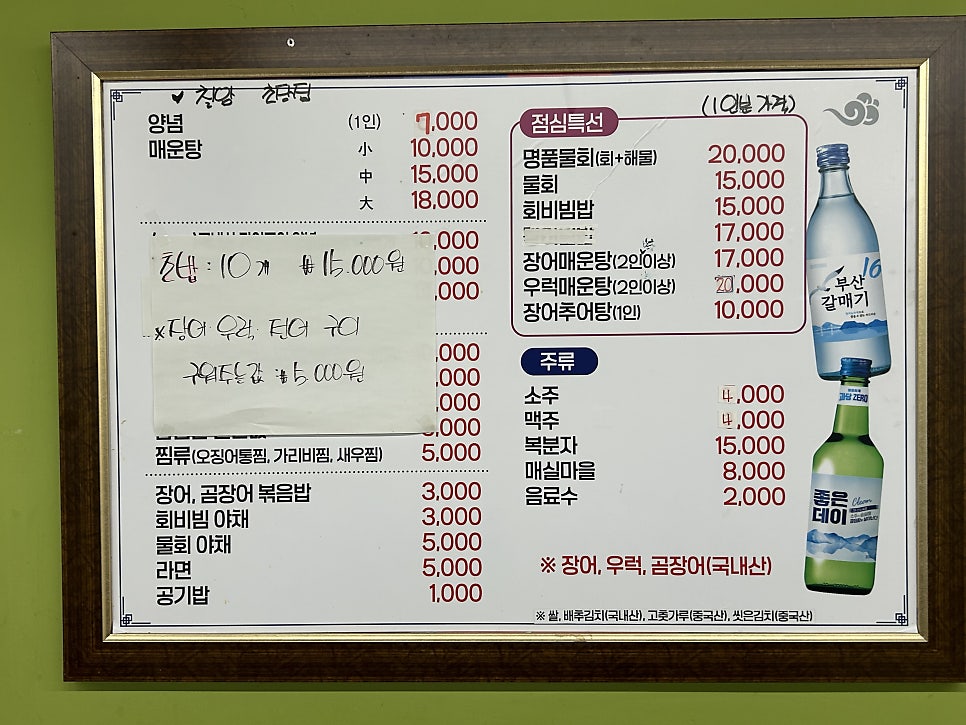 양념 (1인) 7,000
매운탕 小 10,000
中 15,000
大 18,000
초밥 : 10개 ₩15.000원
※장어 우럭 전어 구이
구워주는값 : ₩5.000원
찜류(오징어통찜, 가리비찜, 새우찜) 5,000
장어, 곰장어 볶음밥 3,000
회비빔 야채 3,000
물회 야채 5,000
라면 5,000
공기밥 1,000
(1인분 가격)
점심특선
명품물회(회+해물) 20,000
물회 15,000
회비빔밥 15,000
17,000
장어매운탕(2인이상) 17,000
우럭매운탕(2인이상) 20,000
장어추어탕(1인) 10,000
주류
소주 4,000
맥주 4,000
복분자 15,000
매실마을 8,000
음료수 2,000
※ 장어, 우럭, 곰장어(국내산)
※ 쌀, 배추김치(국내산), 고춧가루(중국산), 씻은김치(중국산)
16
부산
갈매기
과당 ZERO
좋은
데이